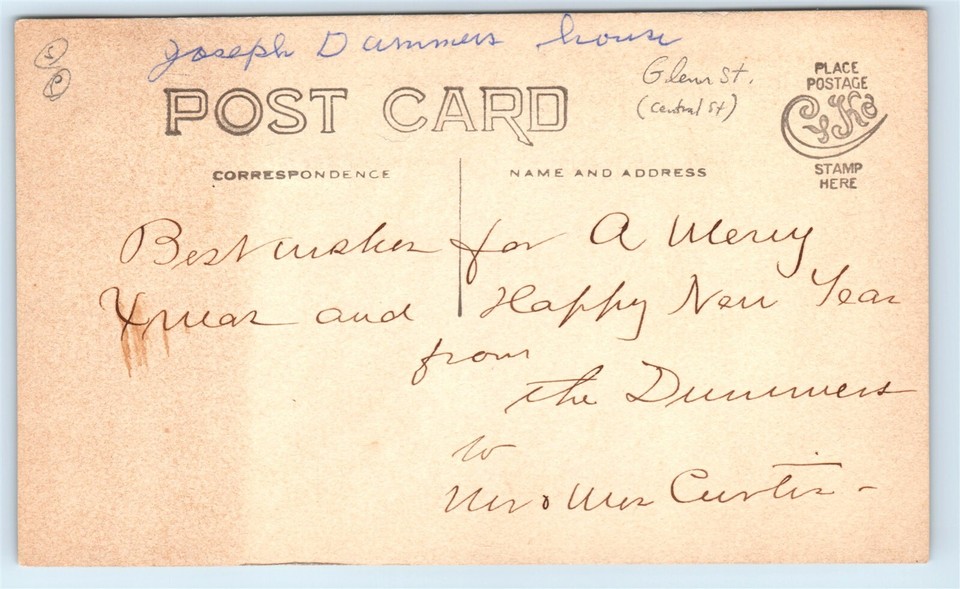 S
P
Joseph Dummers house
Glenn St.
(Central St)
POST CARD
PLACE
POSTAGE
CYKO
STAMP
HERE
CORRESPONDENCE
NAME AND ADDRESS
Best wishes for A Merry
Xmas and Happy New Year
from
the Dummers
to
Mr & Mrs Curtis -